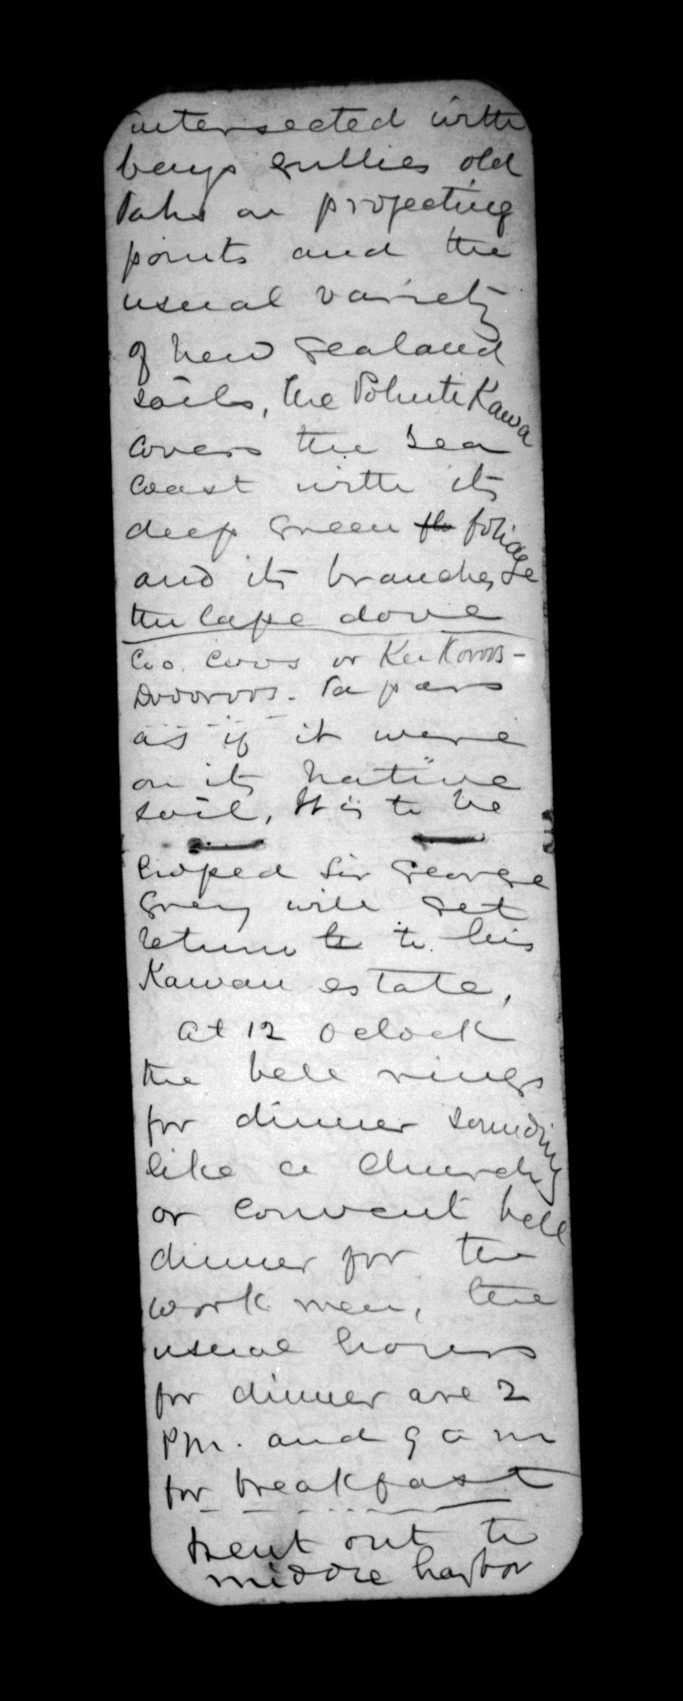 intersected with
bays gullies old
Pahs on projecting
points and the
usual variety
of New Zealand
soils, the Pohuti Kawa
covers the Sea
coast with its
deep green foliage
and its branches
the Cape dove
Coo. Coos or Ku Koroos-
Doororoos.
as if it were
on its native
soil, It is to be
hoped Sir George
Grey will get
return to to his
Kawau estate,
at 12 o clock
the bell rings
for dinner sounding
like a church
or convent bell
dinner for the
work men, the
usual hours
for dinner are 2
Pm. and 9 a m
for breakfast
went out to
middle harbor